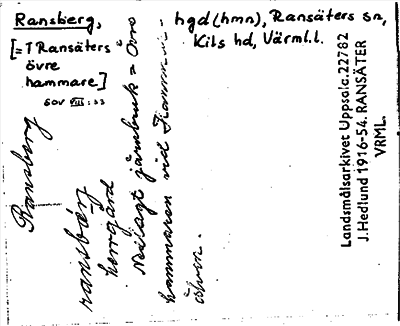 Ransberg, hgd (hmn), Ransäters sn,
Kils hd, Värml.l.
[= T Ransäters
övre
hammare]
SOV VIII: 33
Ransberg
herrgård
Nedlagt järnbruk = Övre
hammaren vid
älven.
Landsmålsarkivet Uppsala. 22782
J. Hedlund 1916-54. RANSÄTER
VRML.